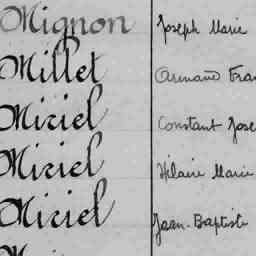 Mignon Joseph Marie
Millet Armand Fran
Miriel Constant Jose
Miriel Hilaire Marie
Miriel Jean-Baptiste